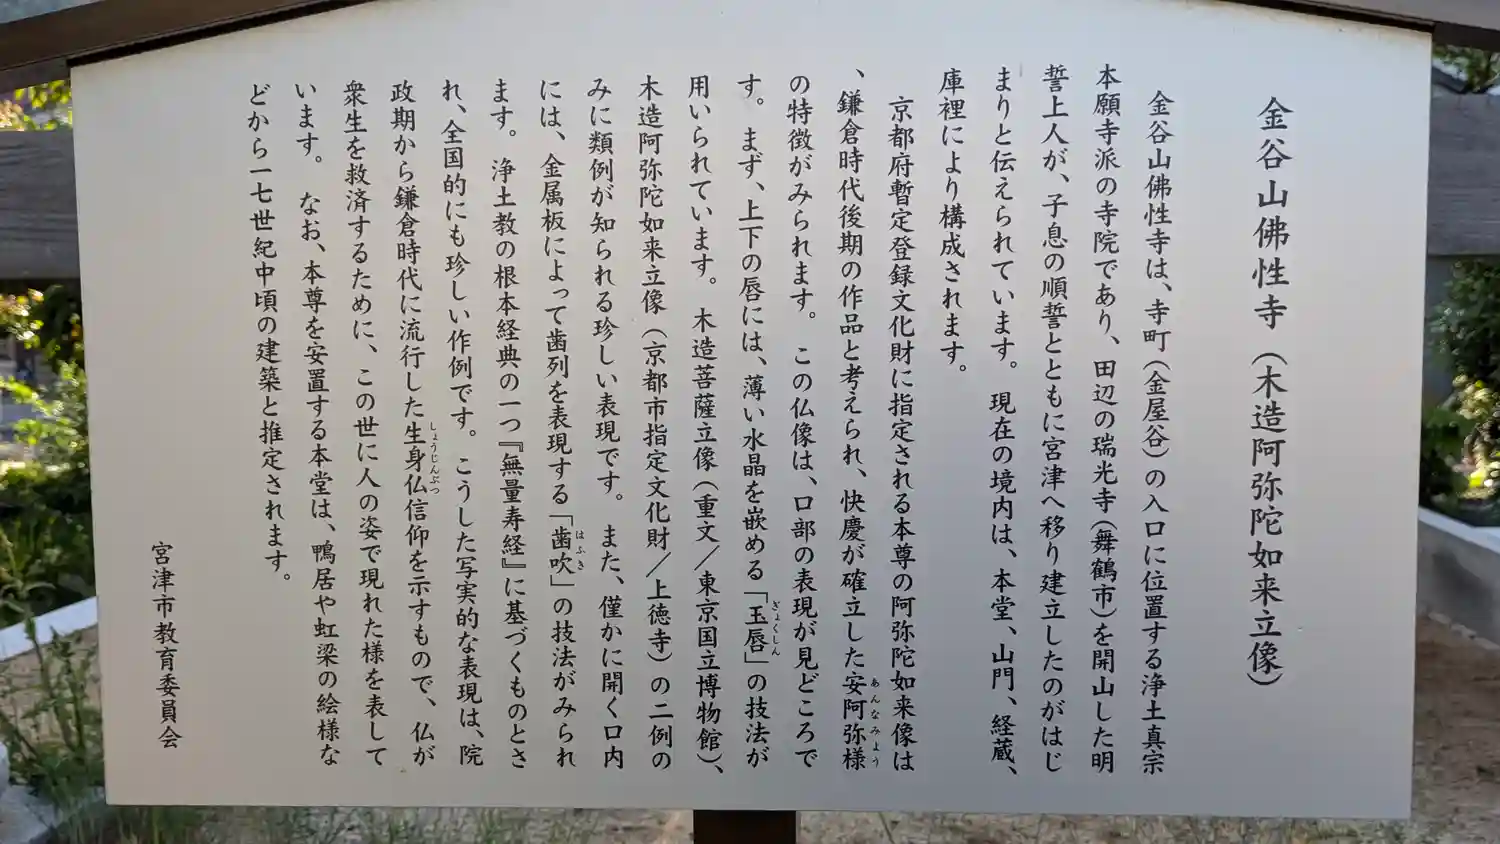 金谷山佛性寺（木造阿弥陀如来立像）
金谷山佛性寺は、寺町（金屋谷）の入口に位置する浄土真宗
本願寺派の寺院であり、田辺の瑞光寺（舞鶴市）を開山した明
誓上人が、子息の順誓とともに宮津へ移り建立したのがはじ
まりと伝えられています。現在の境内は、本堂、山門、経蔵、
庫裡により構成されます。
京都府暫定登録文化財に指定される本尊の阿弥陀如来像は
、鎌倉時代後期の作品と考えられ、快慶が確立した安阿弥様
あんなみよう
の特徴がみられます。この仏像は、口部の表現が見どころで
す。まず、上下の唇には、薄い水晶を嵌める「玉唇」の技法が
ぎょくしん
用いられています。木造菩薩立像（重文／東京国立博物館）、
木造阿弥陀如来立像（京都市指定文化財／上徳寺）の二例の
みに類例が知られる珍しい表現です。また、僅かに開く口内
には、金属板によって歯列を表現する「歯吹」の技法がみられ
はふき
ます。浄土教の根本経典の一つ『無量寿経』に基づくものとさ
れ、全国的にも珍しい作例です。こうした写実的な表現は、院
政期から鎌倉時代に流行した生身仏信仰を示すもので、仏が
しょうじんぶつ
衆生を救済するために、この世に人の姿で現れた様を表して
います。なお、本尊を安置する本堂は、鴨居や虹梁の絵様な
どから一七世紀中頃の建築と推定されます。
宮津市教育委員会